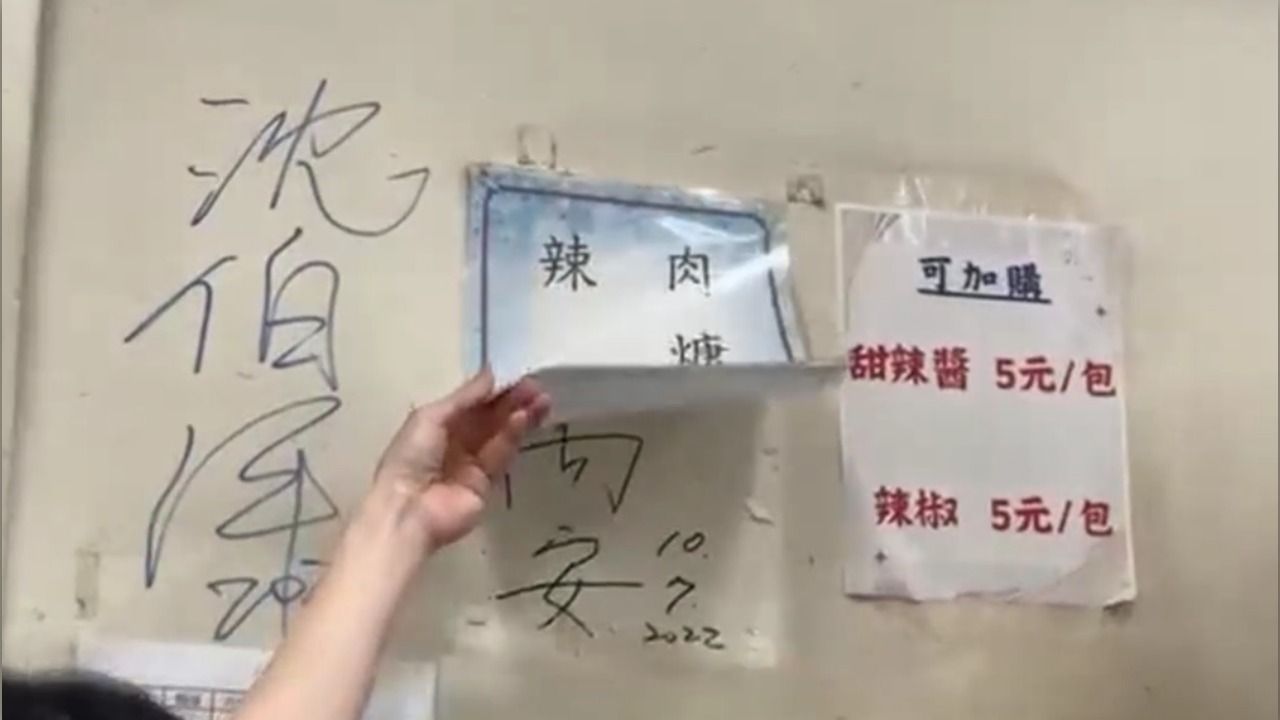 沈
伯
洋
辣 肉
安
10.
7.
2022
可加購
甜辣醬 5元/包
辣椒 5元/包